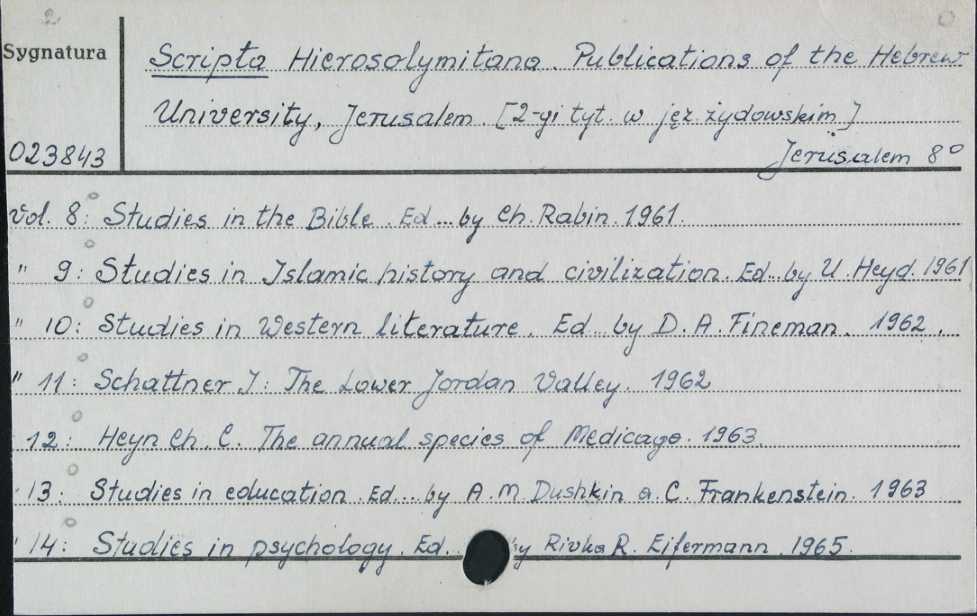 2
Sygnatura
Scripta Hierosolymitana. Publications of the Hebrew
University, Jerusalem. [2-gi tyt. w jęz. żydowskim]
023843
Jerusalem 8°
Vol. 8: Studies in the Bible. Ed... by Ch. Rabin. 1961.
" 9: Studies in Islamic history and civilization. Ed.. by U. Heyd. 1961
" 10: Studies in Western literature. Ed... by D. A. Fineman. 1962.
" 11: Schattner J: The Lower Jordan Valley. 1962
" 12: Heyn Ch. C. The annual species of Medicago. 1963.
" 13: Studies in education. Ed... by A. M. Dushkin a. C. Frankenstein. 1963
" 14: Studies in psychology. Ed. by Rivka R. Eifermann. 1965.